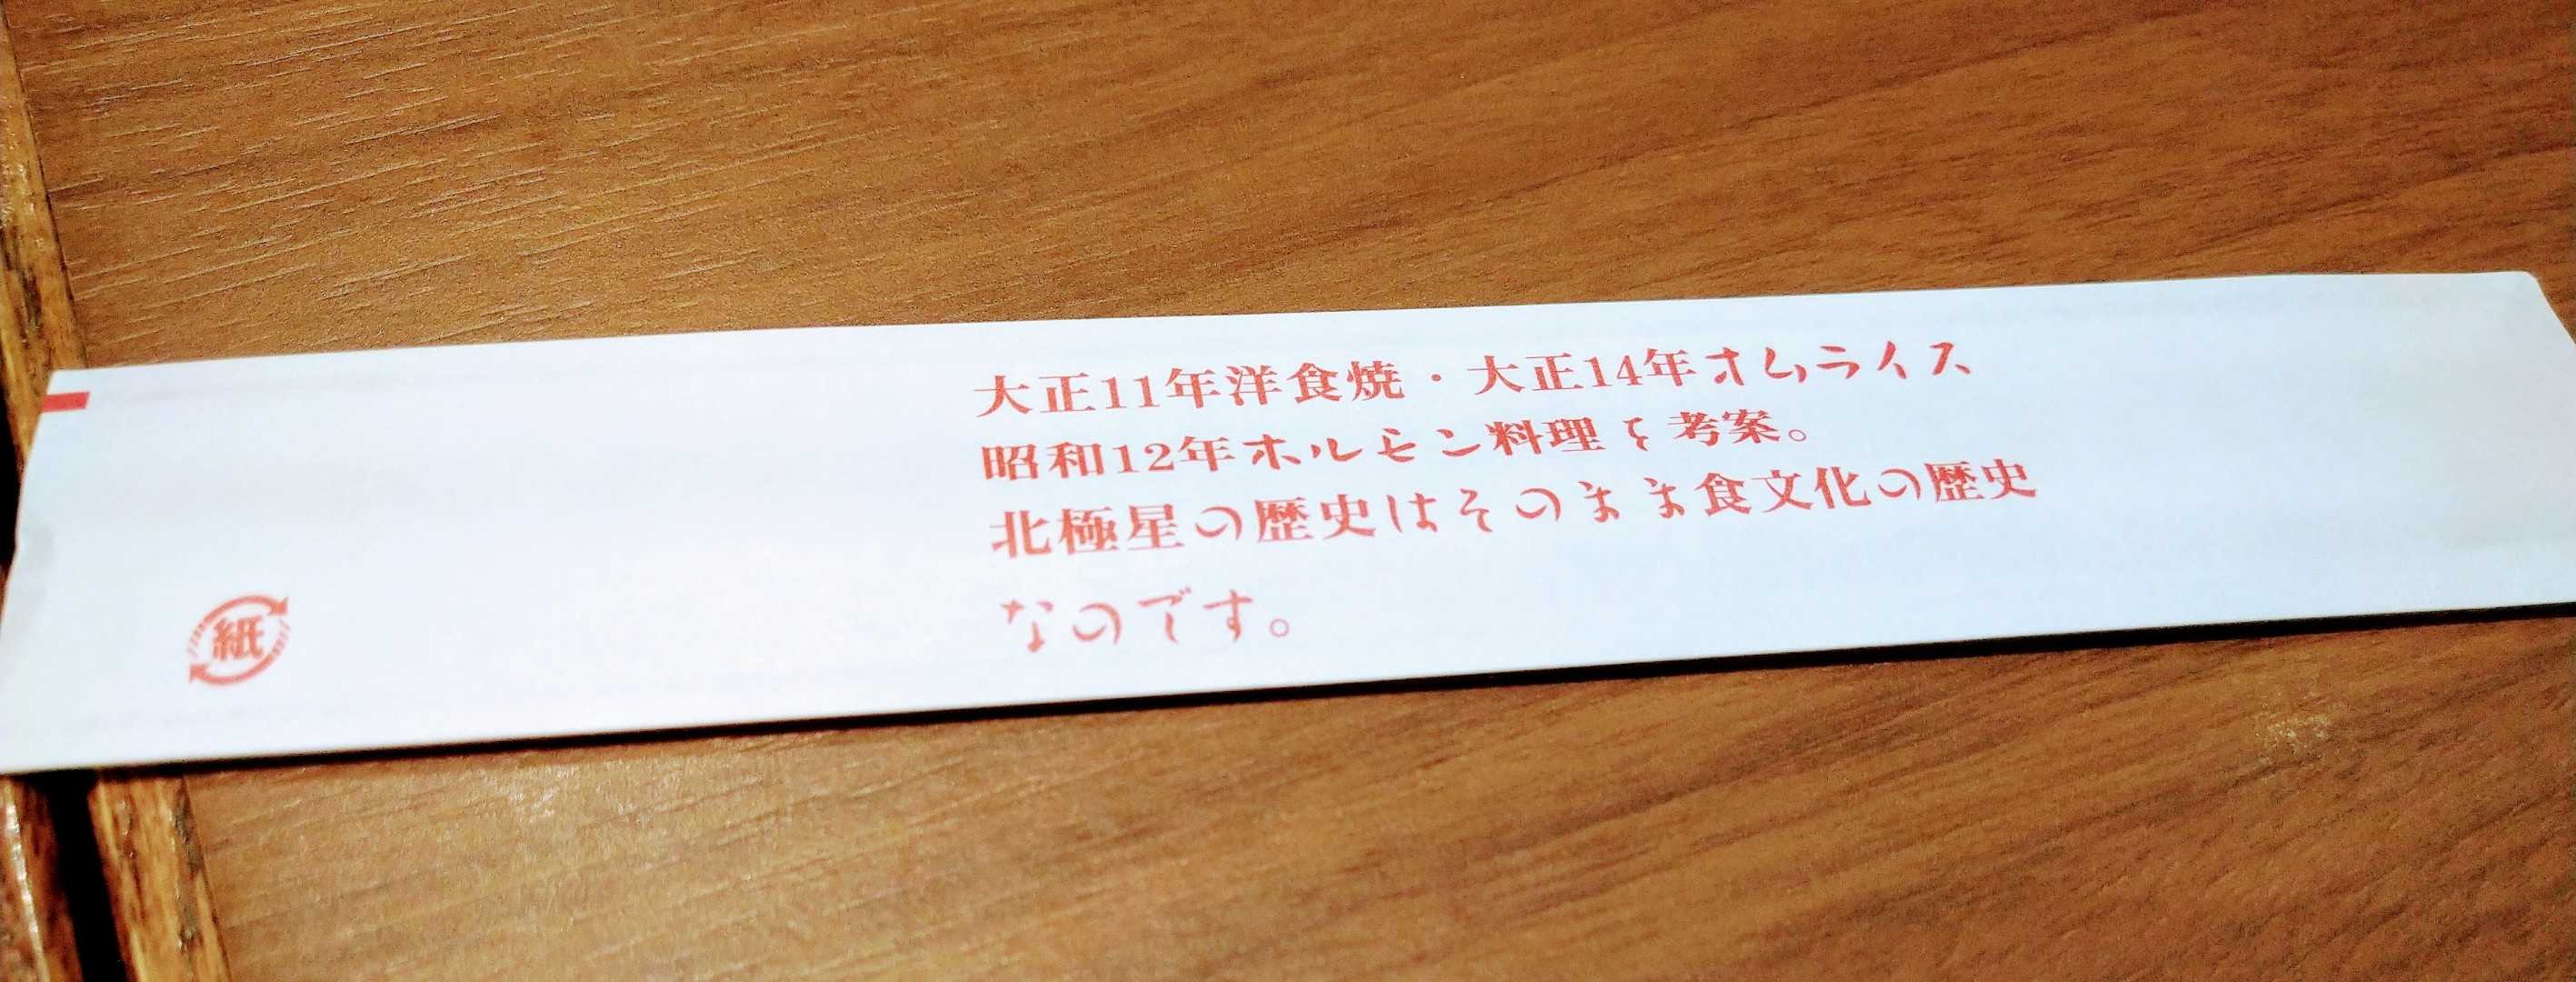 大正11年洋食焼・大正14年オムライス
昭和12年ホルモン料理を考案。
北極星の歴史はそのまま食文化の歴史
なのです。
紙